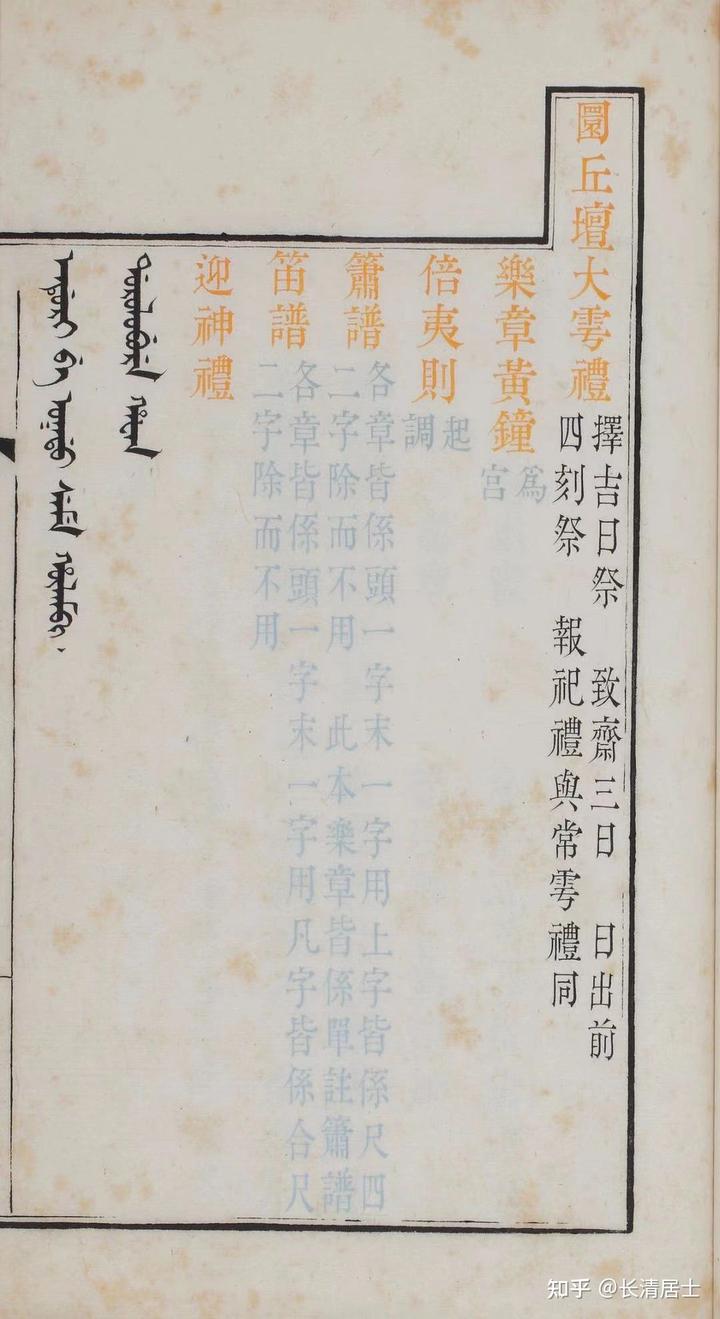 圜丘壇大雩禮
擇吉日祭 致齋三日 日出前
四刻祭 報祀禮與常雩禮同
樂章黃鐘
爲
宮
倍夷則
起
調
簫譜
各章皆係頭一字末一字用上字皆係尺四
二字除而不用 此本樂章皆係單註簫譜
笛譜
各章皆係頭一字末一字用凡字皆係合尺
二字除而不用
迎神禮
知乎 @长清居士